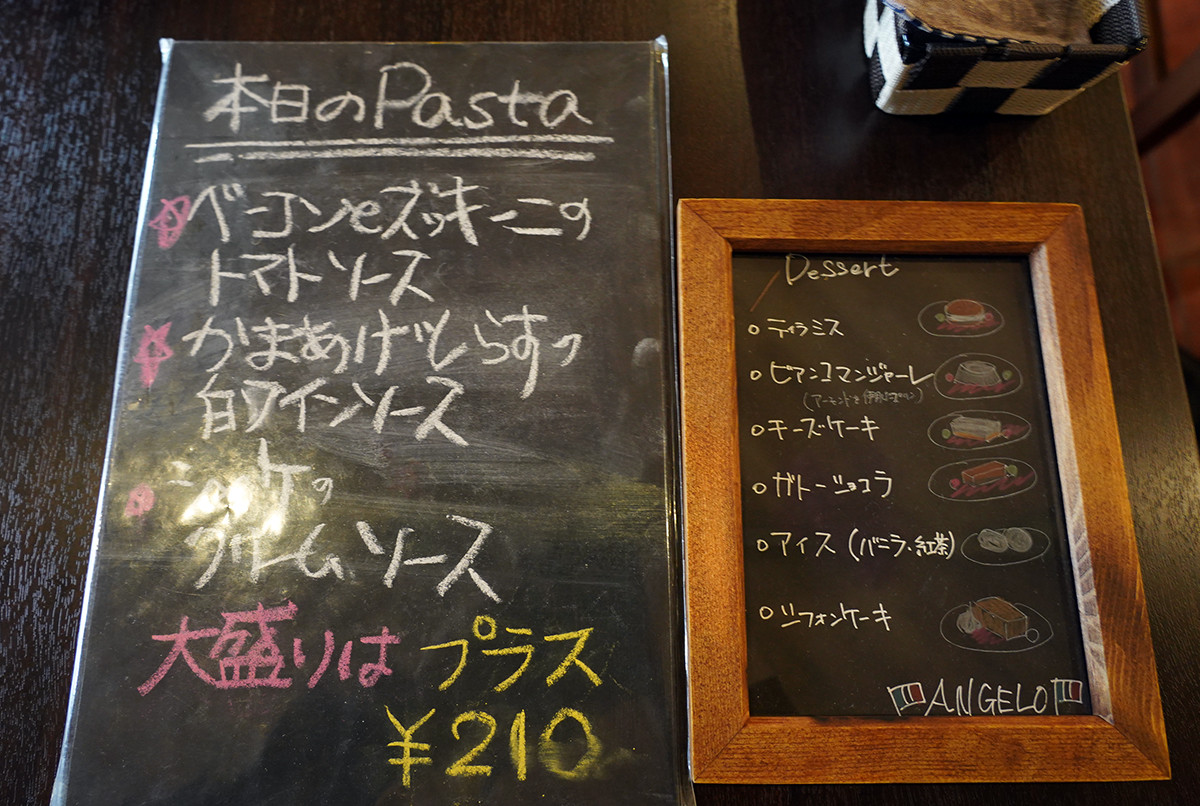 本日のPasta
ベーコンとズッキーニの
トマトソース
かまあげしらすの
白ワインソース
シャケの
クリームソース
大盛りは プラス
¥210
Dessert
ティラミス
ビアンコマンジャーレ
(アーモンドを使用したプリン)
チーズケーキ
ガトーショコラ
アイス(バニラ・紅茶)
シフォンケーキ
ANGELO